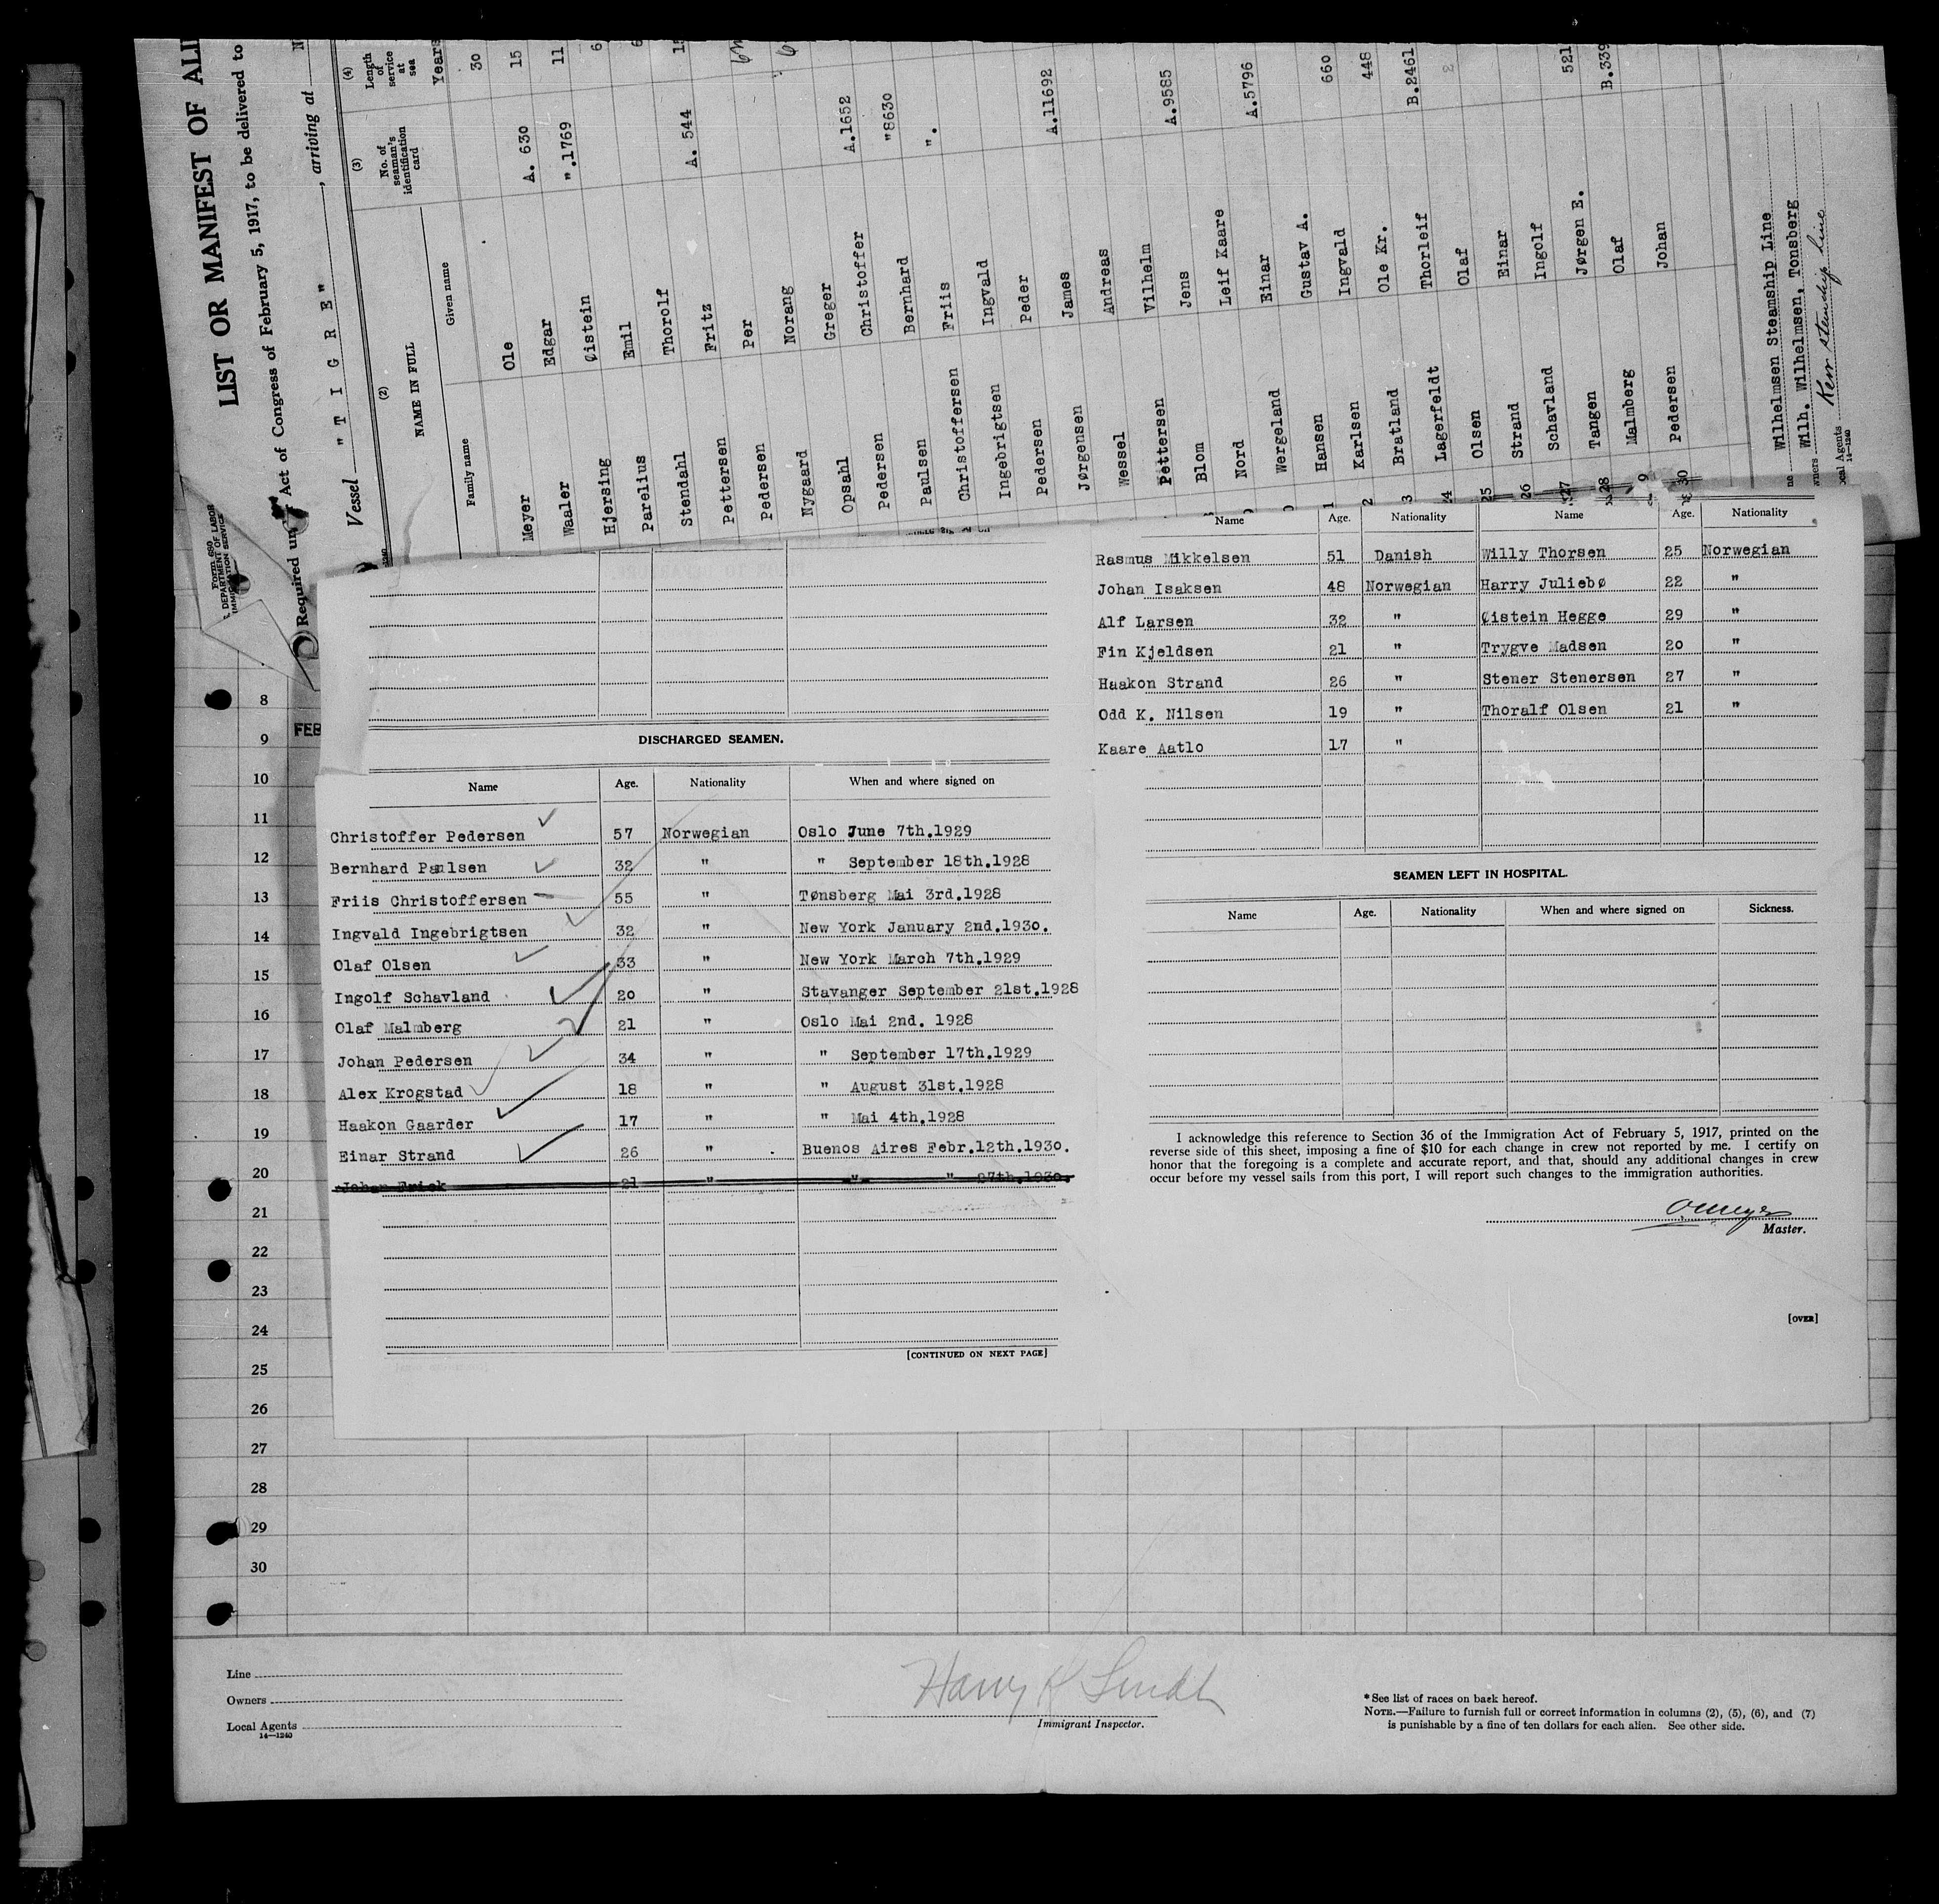 LIST OR MANIFEST OF
Required Act of Congress of February 5, 1917, to be delivered to
Vessel "T I G R E", arriving at
Form 680
(2) (3) (4)
NAME IN FULL
No. of seaman's identification card
Length of service at sea
Family name Given name Years
Meyer Ole 30
Waaler Edgar A. 630 15
Hjersing Øistein ".1769 11
Parelius Emil
Stendahl Thorolf
Pettersen Fritz A. 544
Pedersen Per
Nygaard Norang
Opsahl Greger
Pedersen Christoffer A.1652
Paulsen Bernhard "8630
Christoffersen Friis ".
Ingebrigtsen Ingvald
Pedersen Peder
Jørgensen James A.11692
Wessel Andreas
Pettersen Vilhelm
Blom Jens A.9585
Nord Leif Kaare
Wergeland Einar A.5796
Hansen Gustav A.
Karlsen Ingvald 660
Bratland Ole Kr. 448
Lagerfeldt Thorleif B.2461
25 Olsen Olaf
26 Strand Einar
27 Schavland Ingolf
28 Tangen Jørgen E. 521
Malmberg Olaf B.339
30 Pedersen Johan
Wilhelmsen Steamship Line
Wilh. Wilhelmsen, Tonsberg
Local Agents Kerr steamship line
14—1240
DISCHARGED SEAMEN.
Name Age. Nationality When and where signed on
Christoffer Pedersen 57 Norwegian Oslo June 7th.1929
Bernhard Paulsen 32 " " September 18th.1928
Friis Christoffersen 55 " Tønsberg Mai 3rd.1928
Ingvald Ingebrigtsen 32 " New York January 2nd.1930.
Olaf Olsen 33 " New York March 7th.1929
Ingolf Schavland 20 " Stavanger September 21st.1928
Olaf Malmberg 21 " Oslo Mai 2nd. 1928
Johan Pedersen 34 " " September 17th.1929
Alex Krogstad 18 " " August 31st.1928
Haakon Gaarder 17 " " Mai 4th.1928
Einar Strand 26 " Buenos Aires Febr.12th.1930.
Johan Frick 21 " " " 27th.1930.
[CONTINUED ON NEXT PAGE]
Name Age. Nationality Name Age. Nationality
Rasmus Mikkelsen 51 Danish Willy Thorsen 25 Norwegian
Johan Isaksen 48 Norwegian Harry Juliebø 22 "
Alf Larsen 32 " Øistein Hegge 29 "
Fin Kjeldsen 21 " Trygve Madsen 20 "
Haakon Strand 26 " Stener Stenersen 27 "
Odd K. Nilsen 19 " Thoralf Olsen 21 "
Kaare Aatlo 17 "
SEAMEN LEFT IN HOSPITAL.
Name Age. Nationality When and where signed on Sickness.
I acknowledge this reference to Section 36 of the Immigration Act of February 5, 1917, printed on the
reverse side of this sheet, imposing a fine of $10 for each change in crew not reported by me. I certify on
honor that the foregoing is a complete and accurate report, and that, should any additional changes in crew
occur before my vessel sails from this port, I will report such changes to the immigration authorities.
OMeyer
Master.
[OVER]
FEB
8
9
10
11
12
13
14
15
16
17
18
19
20
21
22
23
24
25
26
27
28
29
30
Line
Owners
Local Agents
14—1240
Harry K
Immigrant Inspector.
*See list of races on back hereof.
NOTE.—Failure to furnish full or correct information in columns (2), (5), (6), and (7)
is punishable by a fine of ten dollars for each alien. See other side.